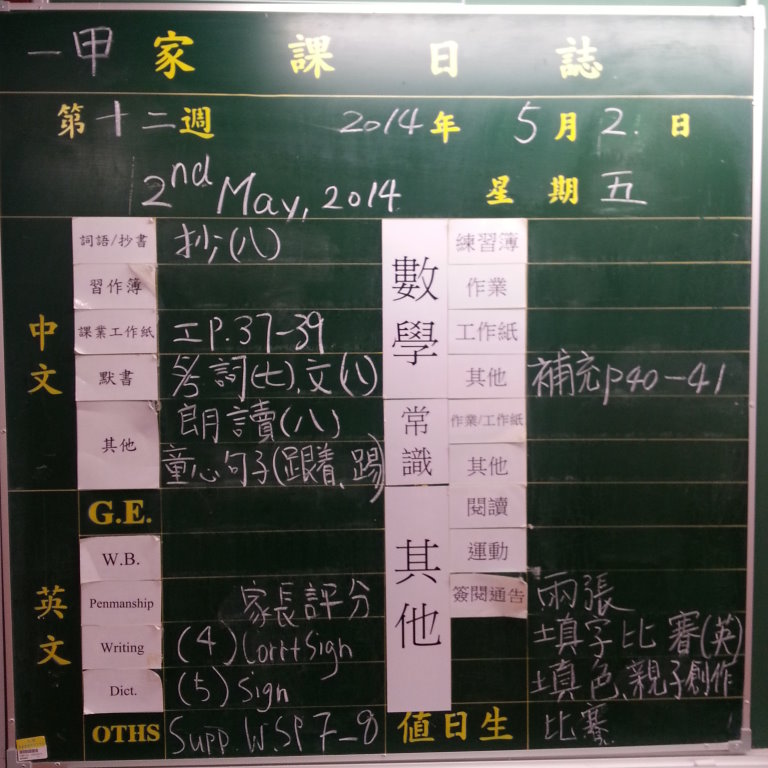 一甲 家課日誌
第十二週 2014年 5月2.日
2nd May, 2014 星期五
中文
詞語/抄書 抄:(八)
習作簿
課業工作紙 工P.37-39
默書 詞(七).文(八)
其他 朗讀(八)
童心句子(跟着、踢)
英文
G.E.
W.B.
Penmanship 家長評分
Writing (4) Corr+Sign
Dict. (5) Sign
OTHS Supp. W.S P7-8
數學
練習簿
作業
工作紙
其他 補充p40-41
常識
作業/工作紙
其他
其他
閱讀
運動
簽閱通告 兩張
填字比賽(英)
填色、親子創作
比賽
值日生